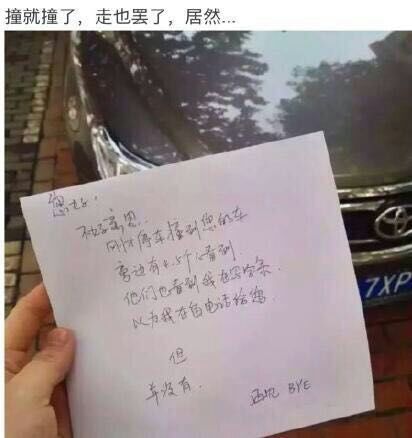 撞就撞了，走也罢了，居然...
您好：
不好意思...
刚才停车撞到您的车
旁边有4.5个人看到
他们也看到我在写字条
以为我在留电话给您
但
并没有.
BYE
7XP